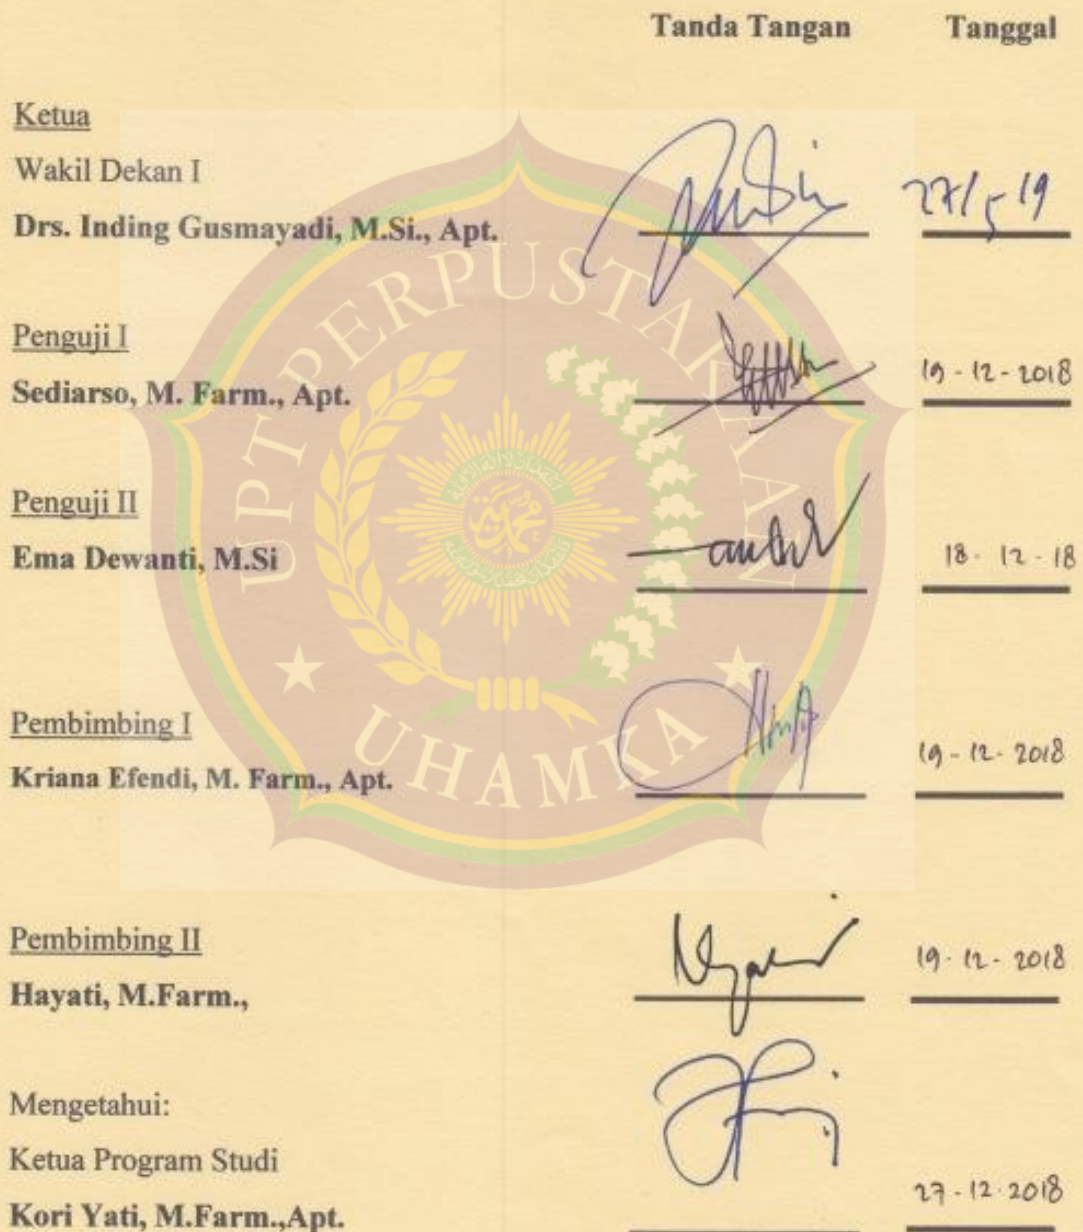 Tanda Tangan Tanggal
Ketua
Wakil Dekan I
Drs. Inding Gusmayadi, M.Si., Apt. 27/5 19
Penguji I
Sediarso, M. Farm., Apt. 19-12-2018
Penguji II
Ema Dewanti, M.Si 18-12-18
Pembimbing I
Kriana Efendi, M. Farm., Apt. 19-12-2018
Pembimbing II
Hayati, M.Farm., 19-12-2018
Mengetahui:
Ketua Program Studi
Kori Yati, M.Farm.,Apt. 27-12-2018
UPT PERPUSTAKAAN
UHAMKA